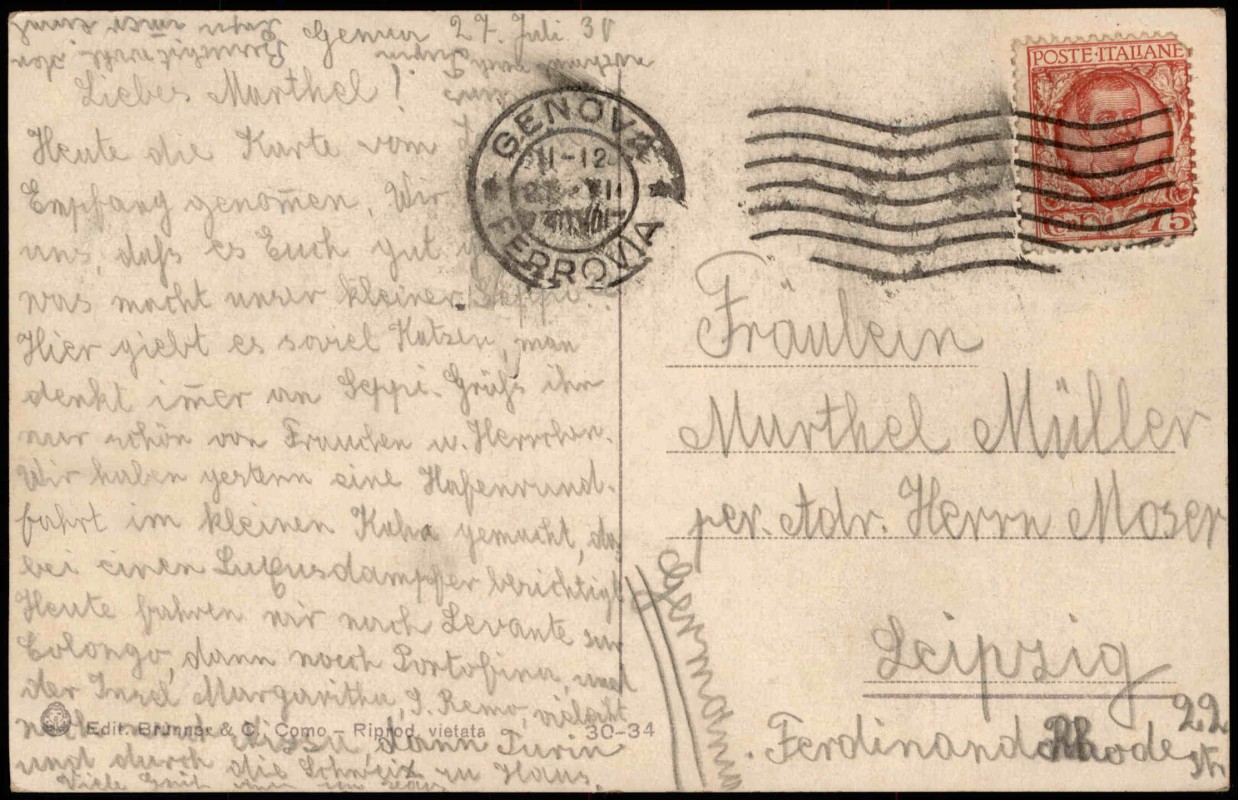 Genua 27. Juli 30
Liebes Marthel!
Heute die Karte vom
Empfang genom̄en. Wir
uns, dafs es Euch gut
was macht unser kleiner Seppi?
Hier giebt es soviel Katzen, man
denkt im̄er an Seppi. Grüfs ihn
nur schön von Frauchen u. Herrchen.
Wir haben gestern eine Hafenrund-
fahrt im kleinen Kahn gemacht, da
bei einen Luxusdampfer besichtigt
Heute fahren wir nach Levante zur
dann noch Portofino, und
der Insel Margaritha, S. Remo, vieleicht
noch nach dann Turin
und durch die Schweiz zu Haus.
Viele
Edit. Brunner & C., Como - Riprod. vietata 30-34
GENOVA
11-12
FERROVIA
POSTE·ITALIANE
Cent. 75
Fräulein
Marthel Müller
per. Adr. Herrn Moser
Leipzig
Ferdinand Rhode str
22
Germania